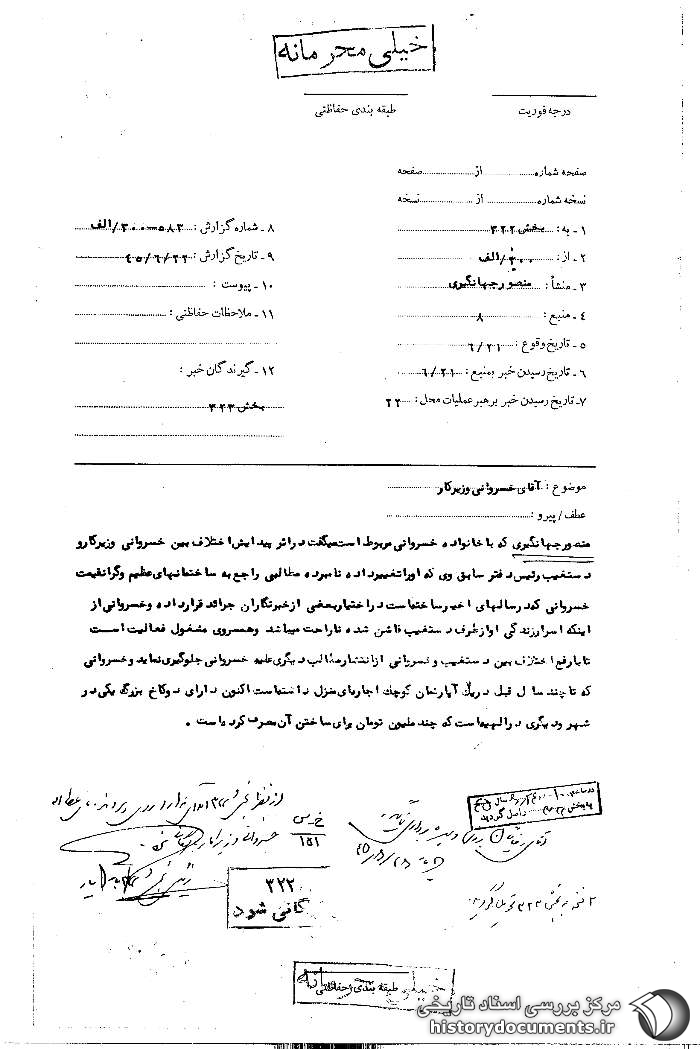 خیلی محرمانه
درجه فوریت
طبقه بندی حفاظتی
صفحه شماره ............ از ............ صفحه
نسخه شماره ............ از ............ نسخه
۱ - به : بخش ۳۲۲
۲ - از : ۳۰۰/الف
۳ - منشأ : منصور جهانگیری
۴ - منبع : ۸
۵ - تاریخ وقوع : ۶/۲۱
۶ - تاریخ رسیدن خبر به منبع : ۶/۲۱
۷ - تاریخ رسیدن خبر برهبر عملیات محل : ۲۲
۸ - شماره گزارش : ۵۸۳ - ۳۰۰/الف
۹ - تاریخ گزارش : ۴۵/۶/۲۲
۱۰ - پیوست :
۱۱ - ملاحظات حفاظتی :
۱۲ - گیرندگان خبر :
بخش ۳۲۳
موضوع : آقای خسروانی وزیر کار
عطف / پیرو :
منصور جهانگیری که با خانواده خسروانی مربوط است میگفت در اثر پیدایش اختلاف بین خسروانی وزیر کار و
دستغیب رئیس دفتر سابق وی که او را تغییر داده نامبرده مطالبی راجع به ساختمانهای عظیم و گرانقیمت
خسروانی که در سالهای اخیر ساخته است در اختیار بعضی از خبرنگاران جرائد قرار داده و خسروانی از
اینکه اسرار زندگی او از طرف دستغیب فاش شده ناراحت میباشد و همسروی مشغول فعالیت است
تا با رفع اختلاف بین دستغیب و خسروانی از انتشار مطالب دیگری علیه خسروانی جلوگیری نماید و خسروانی
که تا چند سال قبل در یک آپارتمان کوچک اجاره‌ای منزل داشته است اکنون دارای دو کاخ بزرگ یکی در
شهر و دیگری در الهیه است که چند ملیون تومان برای ساختن آن مصرف کرده است .
خ-س
۱۵۱
۳۲۲
گانی شود
طبقه بندی حفاظتی
مرکز بررسی اسناد تاریخی
historydocuments.ir